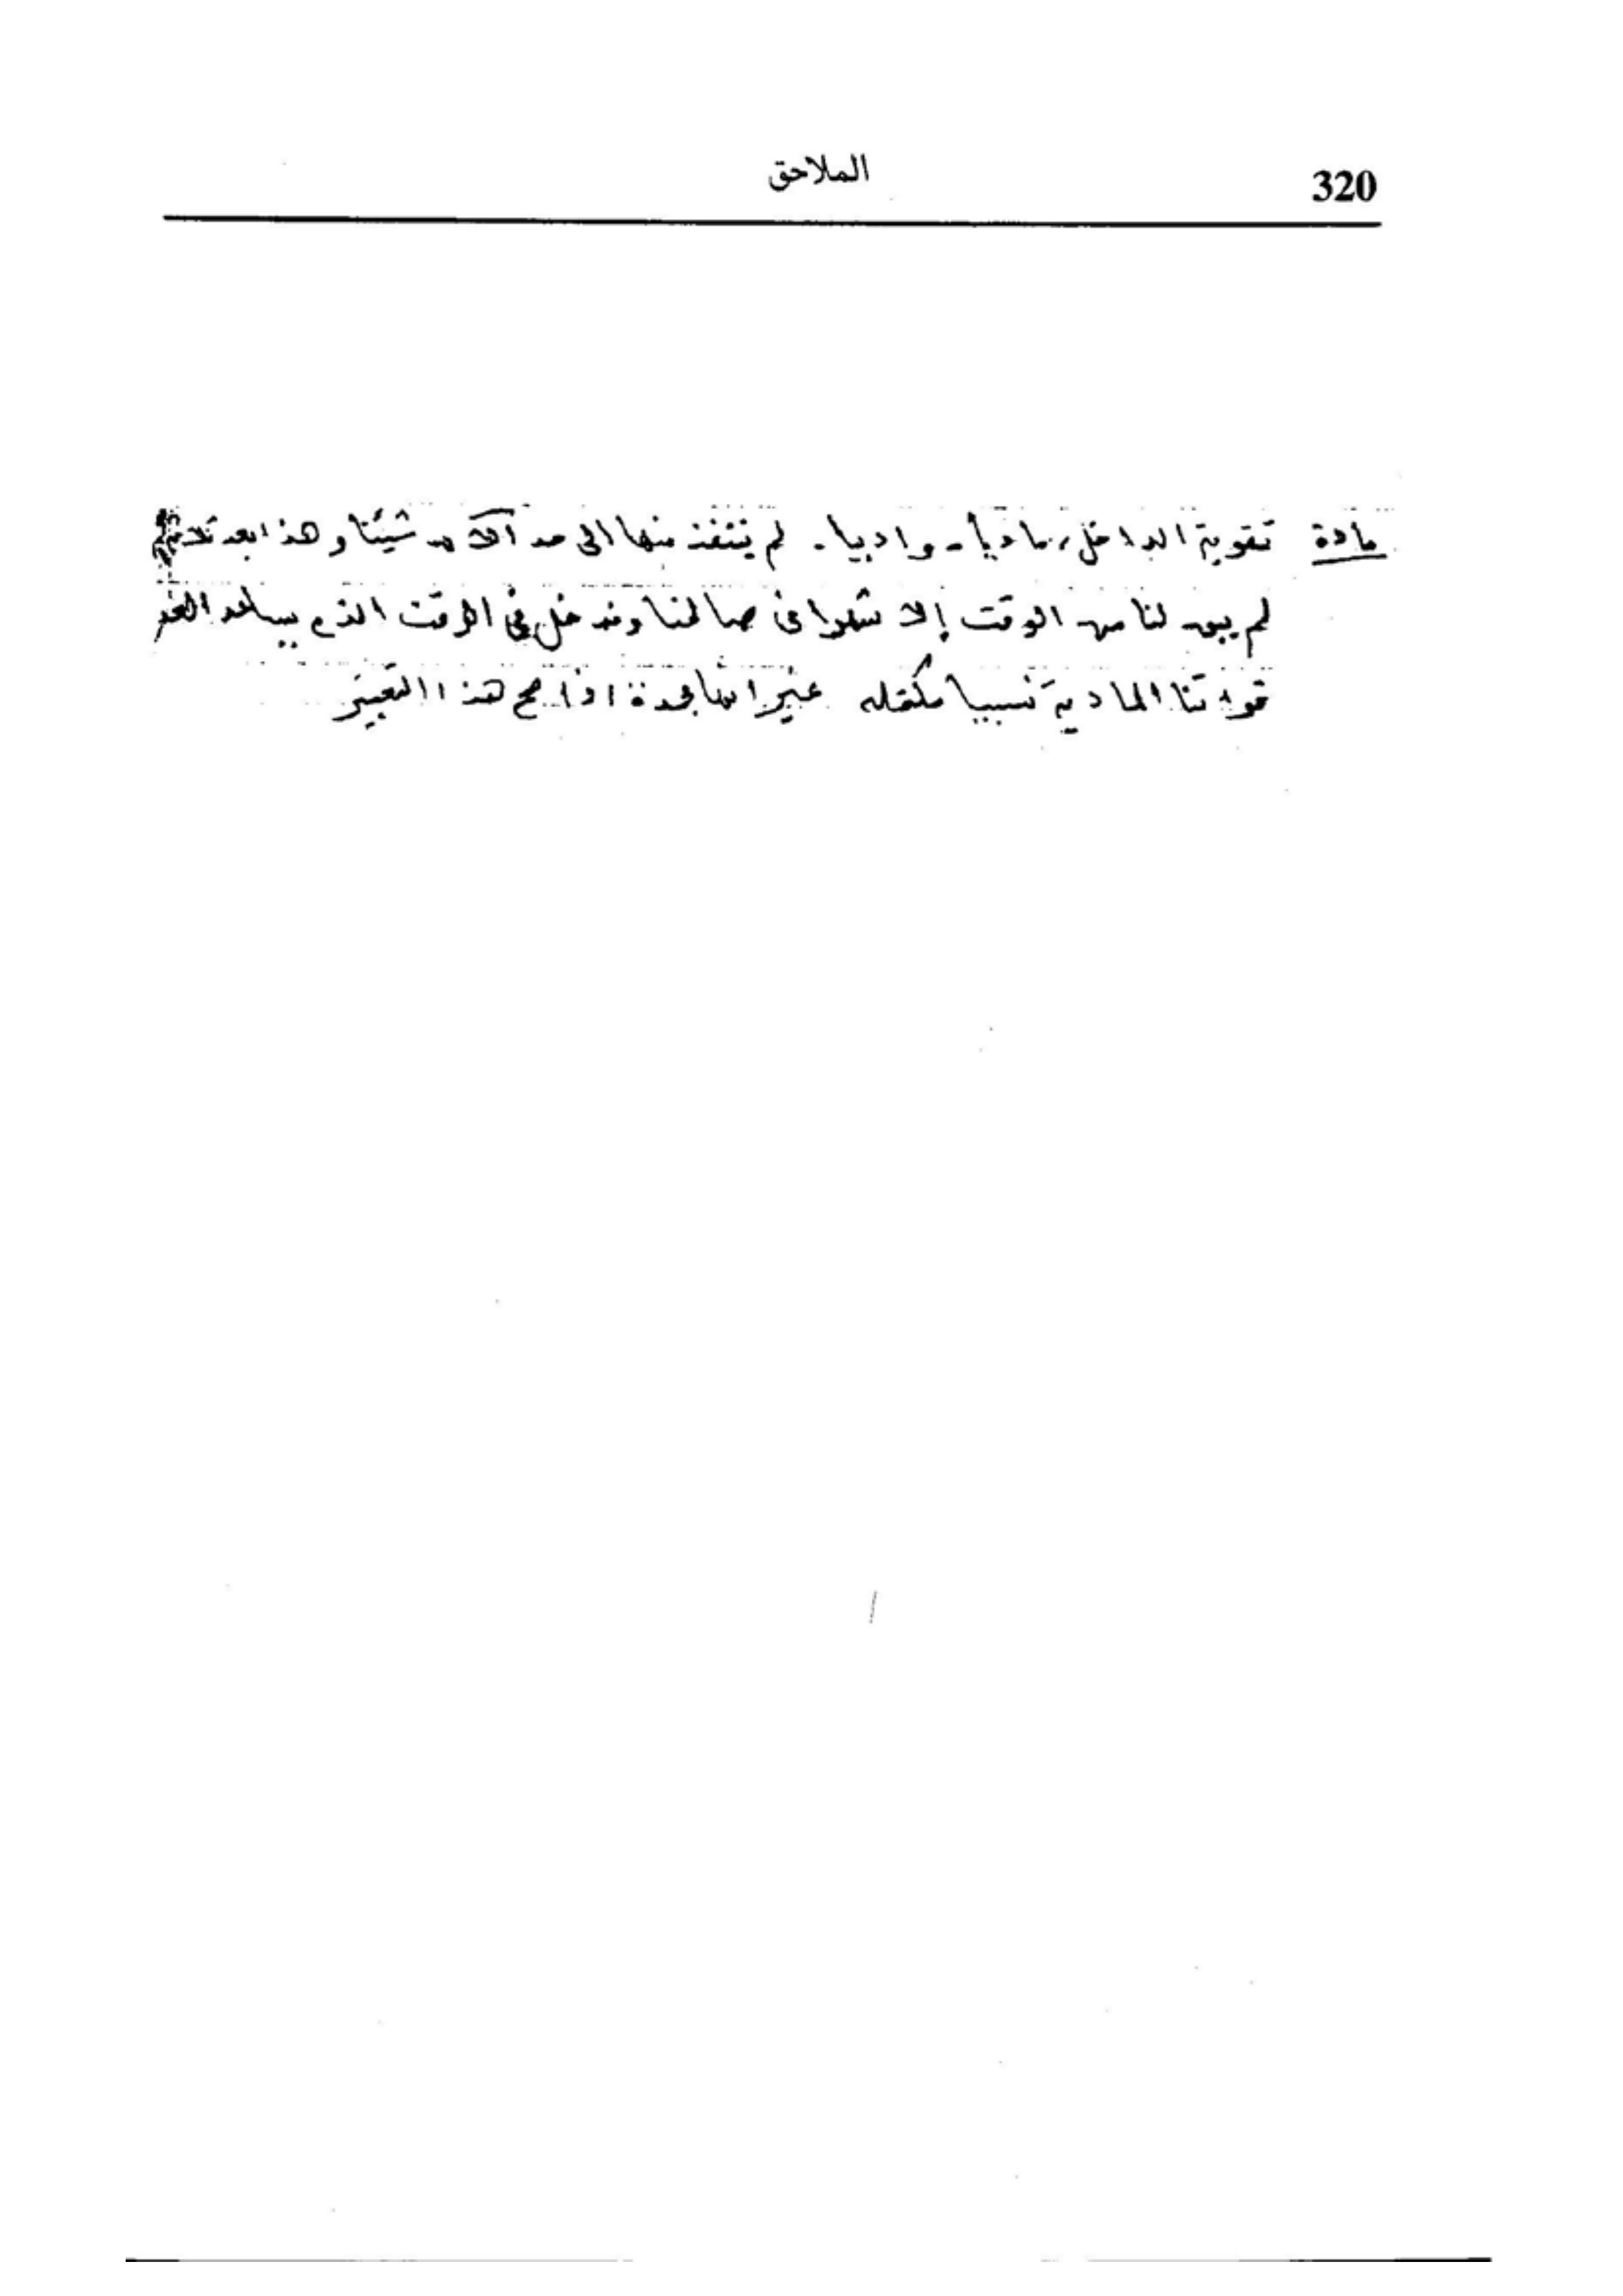 320
الملاحق
مادة تقوية الداخل، مادياً - وادبيا. لم يتنفذ منها الى حد الآن شيئا و هذا بعد ثلاثة
لم يبق لنا من الوقت إلا شهرا في صالحنا وندخل في الوقت الذي يساعد العدو
قوتنا المادية نسبيا مكتملة غير انها مجمدة اذا صح هذا التعبير